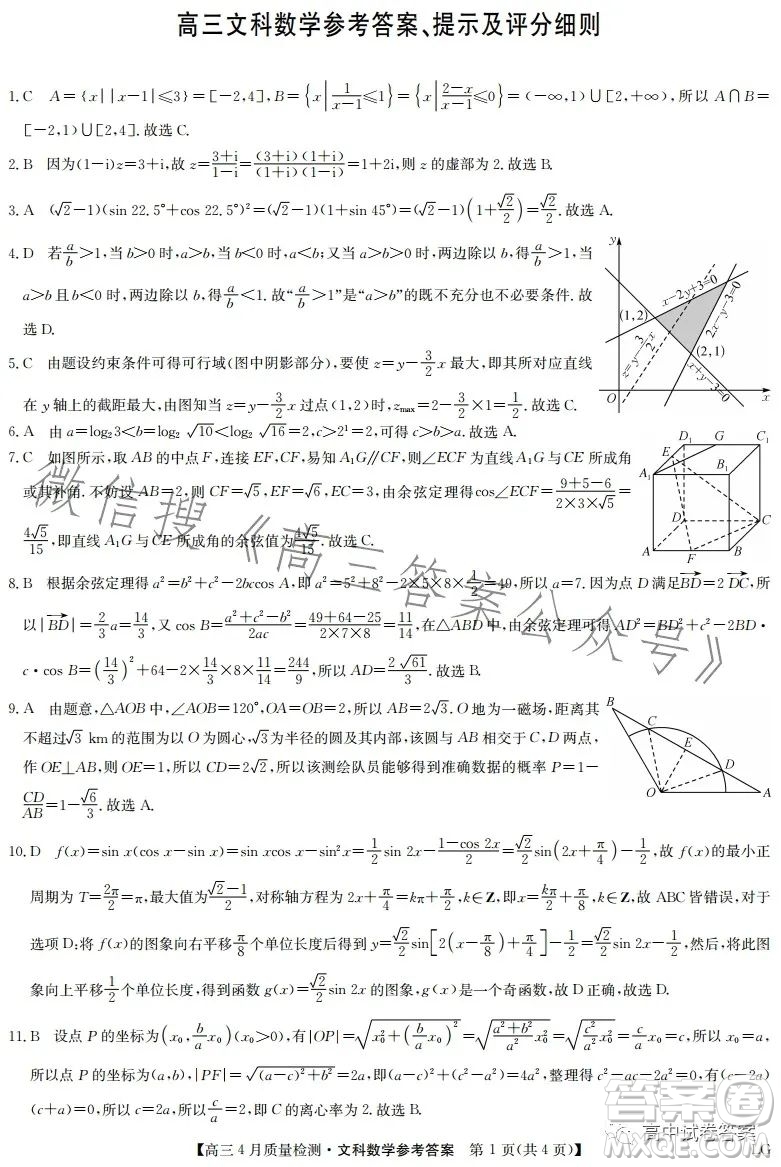 高三文科数学参考答案、提示及评分细则
1.C　A={x||x-1|≤3}=[-2,4],B={x|1/(x-1)≤1}={x|(2-x)/(x-1)≤0}=(-∞,1)∪[2,+∞),所以 A∩B=
[-2,1)∪[2,4].故选C.
2.B　因为(1-i)z=3+i,故 z=(3+i)/(1-i)=(3+i)(1+i)/(1+i)(1-i)=1+2i,则 z 的虚部为 2.故选 B.
3.A　(√2-1)(sin 22.5°+cos 22.5°)²=(√2-1)(1+sin 45°)=(√2-1)(1+√2/2)=√2/2.故选 A.
4.D　若a/b>1,当 b>0 时,a>b,当 b<0 时,a<b;又当 a>b 时,两边除以 b,得a/b>1,当
a>b 且 b<0 时,两边除以 b,得a/b<1.故“a/b>1”是“a>b”的既不充分也不必要条件.故
选 D.
y
x-2y+3=0
(1,2)
2x-y-3=0
z=y-3/2x
(2,1)
x+y-3=0
O
x
5.C　由题设约束条件可得可行域(图中阴影部分),要使 z=y-3/2x 最大,即其所对应直线
在 y 轴上的截距最大,由图知当 z=y-3/2x 过点(1,2)时,zmax=2-3/2×1=1/2.故选 C.
6.A　由 a=log₂3<b=log₂ √10<log₂ √16=2,c>2¹=2,可得 c>b>a.故选 A.
7.C　如图所示,取 AB 的中点 F,连接 EF,CF,易知 A₁G∥CF,则∠ECF 为直线 A₁G 与 CE 所成角
或其补角.不妨设 AB=2,则 CF=√5,EF=√6,EC=3,由余弦定理得cos∠ECF=(9+5-6)/(2×3×√5)=
4√5/15,即直线 A₁G 与 CE 所成角的余弦值为4√5/15.故选 C.
D₁
G
C₁
E
A₁
B₁
D
C
A
F
B
8.B　根据余弦定理得 a²=b²+c²-2bccos A,即 a²=5²+8²-2×5×8×1/2=49,所以 a=7.因为点 D 满足BD=2 DC,所
以|BD|=2/3a=14/3,又 cos B=(a²+c²-b²)/2ac=(49+64-25)/(2×7×8)=11/14,在△ABD 中,由余弦定理可得 AD²=BD²+c²-2BD·
c·cos B=(14/3)²+64-2×14/3×8×11/14=244/9,所以 AD=2√61/3.故选 B.
9.A　由题意,△AOB 中,∠AOB=120°,OA=OB=2,所以 AB=2√3.O 地为一磁场,距离其
不超过√3 km 的范围为以 O 为圆心,√3为半径的圆及其内部,该圆与 AB 相交于 C,D 两点,
作 OE⊥AB,则 OE=1,所以 CD=2√2,所以该测绘队员能够得到准确数据的概率 P=1-
CD/AB=1-√6/3.故选 A.
B
C
E
D
O
A
10.D　f(x)=sin x(cos x-sin x)=sin xcos x-sin²x=1/2sin 2x-(1-cos 2x)/2=√2/2sin(2x+π/4)-1/2,故 f(x)的最小正
周期为 T=2π/2=π,最大值为(√2-1)/2,对称轴方程为 2x+π/4=kπ+π/2,k∈Z,即x=kπ/2+π/8,k∈Z,故 ABC 皆错误,对于
选项 D:将 f(x)的图象向右平移π/8个单位长度后得到 y=√2/2sin[2(x-π/8)+π/4]-1/2=√2/2sin 2x-1/2,然后,将此图
象向上平移1/2个单位长度,得到函数 g(x)=√2/2sin 2x 的图象,g(x)是一个奇函数,故 D 正确,故选 D.
11.B　设点 P 的坐标为(x₀,b/a x₀)(x₀>0),有|OP|=√(x₀²+(b/a x₀)²)=√((a²+b²)/a² x₀²)=√(c²/a² x₀²)=c/a x₀=c,所以 x₀=a,
所以点 P 的坐标为(a,b),|PF|=√((a-c)²+b²)=2a,即(a-c)²+(c²-a²)=4a²,整理得 c²-ac-2a²=0,有(c-2a)
(c+a)=0,所以 c=2a,所以c/a=2,即 C 的离心率为 2.故选 B.
【高三 4 月质量检测·文科数学参考答案　第 1 页(共 4 页)】
LG
微信搜《高三答案公众号》
答案圈
高中试卷答案